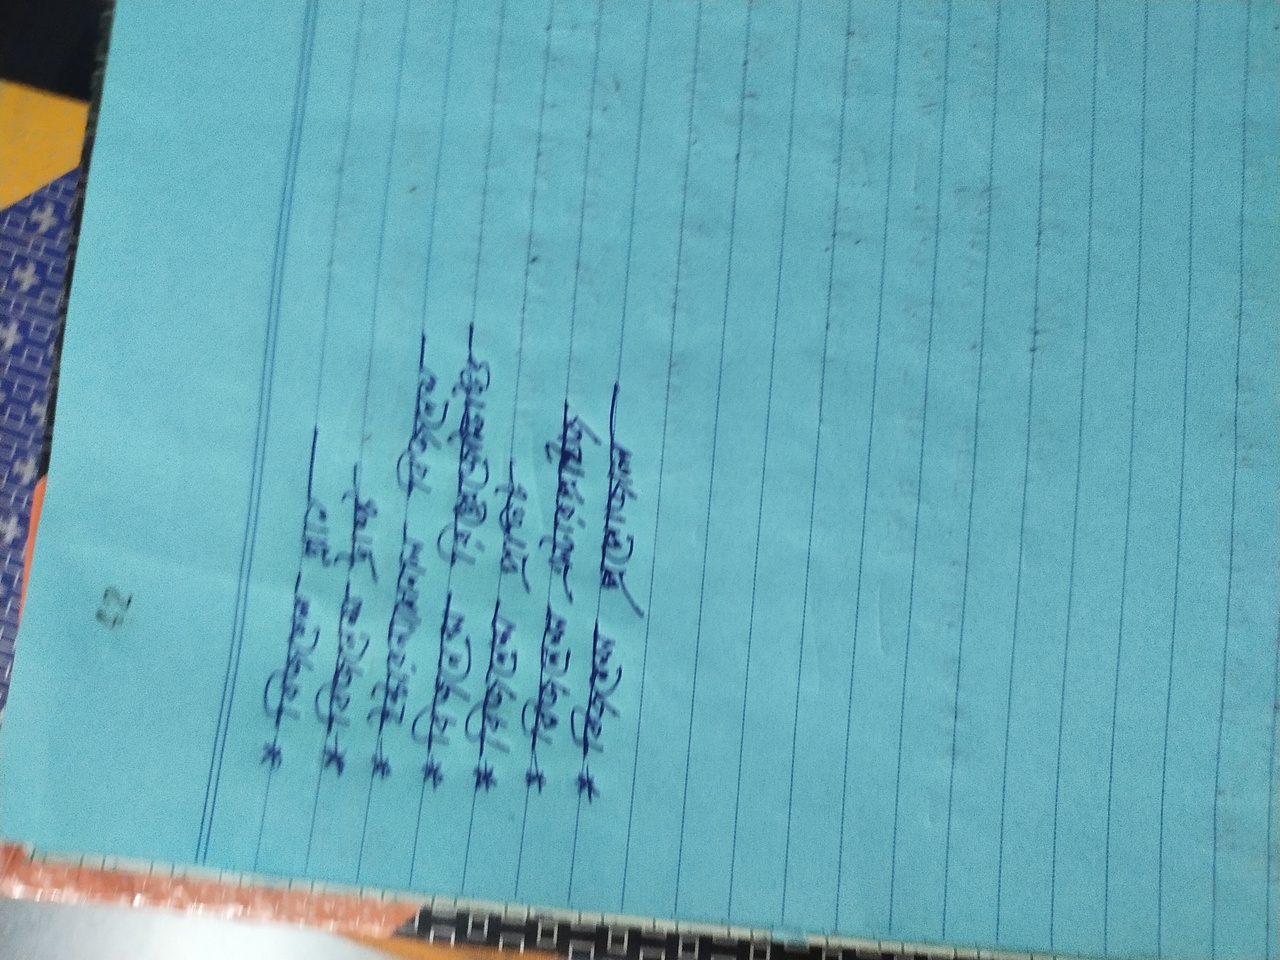 42
* বিজনেস প্লান
* বিজনেস ট্রেন্ড
* ইন্টারন্যাশনাল বিজনেস
* বিজনেস
* বিজনেস প্রফিট
* বিজনেস এন্টারপ্রাইজ
* বিজনেস প্রপোজাল